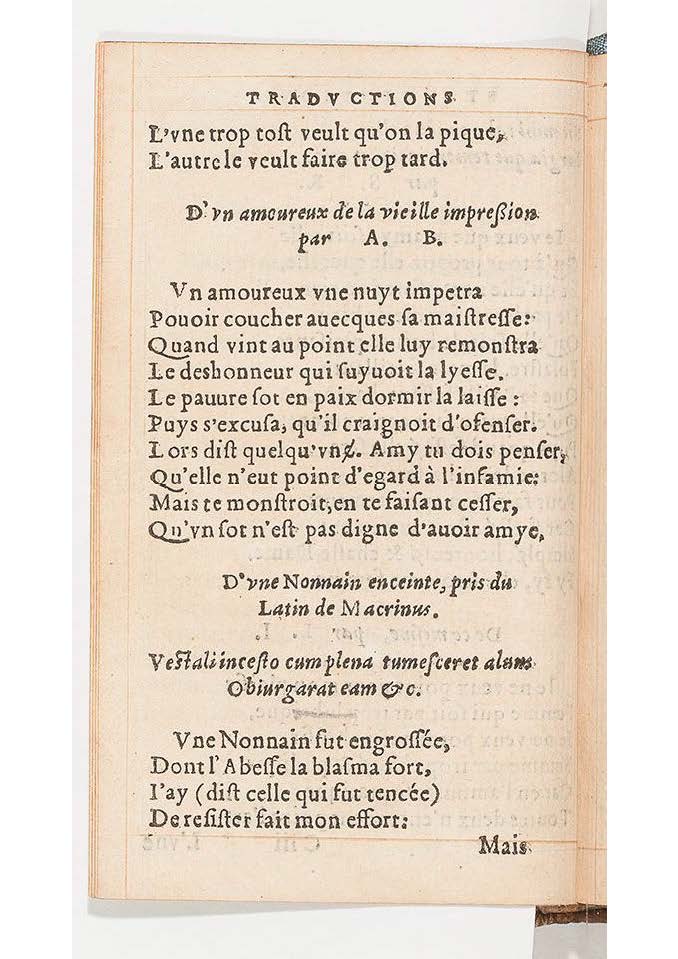 TRADVCTIONS
L'vne trop tost veult qu'on la pique,
L'autre le veult faire trop tard.
D'vn amoureux de la vieille impreßion
par A. B.
Vn amoureux vne nuyt impetra
Pouoir coucher auecques sa maistresse:
Quand vint au point elle luy remonstra
Le deshonneur qui suyuoit la lyesse.
Le pauure sot en paix dormir la laisse:
Puys s'excusa, qu'il craignoit d'ofenser.
Lors dist quelqu'vn. Amy tu dois penser,
Qu'elle n'eut point d'egard à l'infamie:
Mais te monstroit, en te faisant cesser,
Qu'vn sot n'est pas digne d'auoir amye,
D'vne Nonnain enceinte, pris du
Latin de Macrinus.
Vestali incesto cum plena tumesceret aluus
Obiurgarat eam &c.
Vne Nonnain fut engrossée,
Dont l'Abesse la blasma fort,
I'ay (dist celle qui fut tencée)
De resister fait mon effort:
Mais